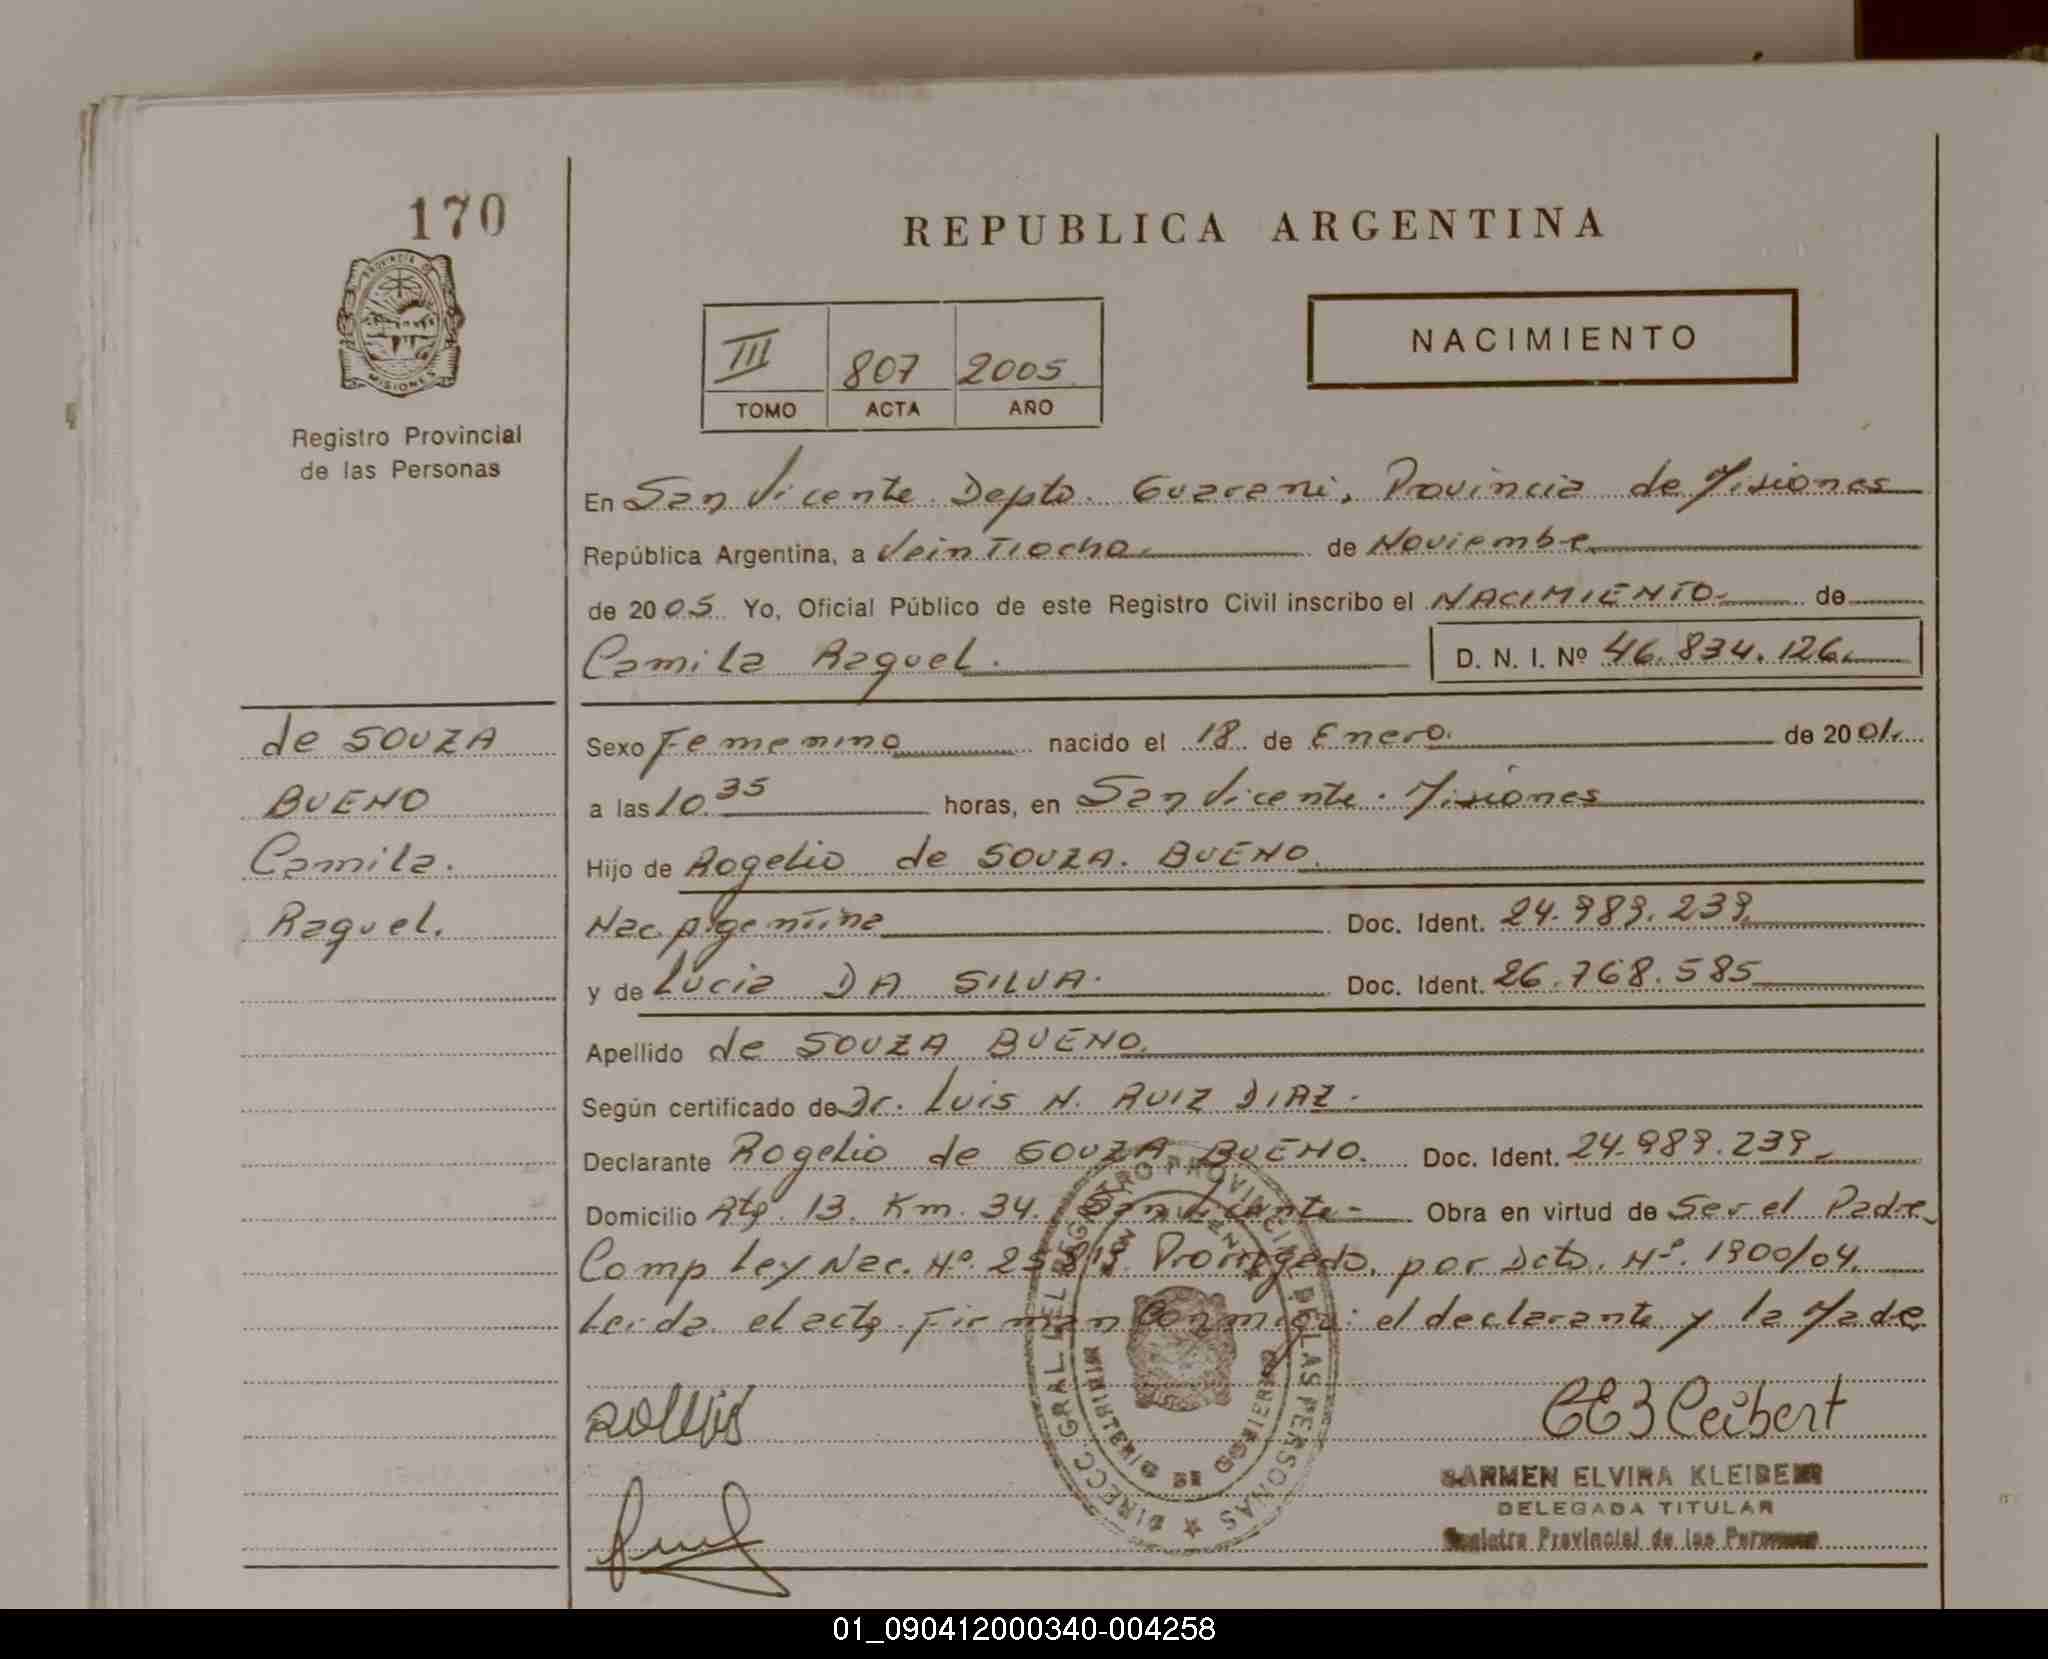 170
PROVINCIA DE
MISIONES
Registro Provincial
de las Personas
REPUBLICA ARGENTINA
III 807 2005
TOMO ACTA AÑO
NACIMIENTO
En San Vicente. Depto. Guarani, Provincia de Misiones
República Argentina, a Veintiocho. de Noviembre
de 2005. Yo, Oficial Público de este Registro Civil inscribo el NACIMIENTO. de
Camila Raquel. D. N. I. Nº 46.834.126.
de SOUZA
BUENO
Camila.
Raquel.
Sexo Femenino nacido el 18 de Enero. de 2001.
a las 10.35 horas, en San Vicente. Misiones
Hijo de Rogelio de SOUZA. BUENO.
Nac. Argentina Doc. Ident. 24.989.239.
y de Lucia DA SILVA. Doc. Ident. 26.768.585
Apellido de SOUZA BUENO.
Según certificado de Dr. Luis N. RUIZ DIAZ.
Declarante Rogelio de SOUZA BUENO. Doc. Ident. 24.989.239.
Domicilio Rta. 13. Km. 34. San Vicente- Obra en virtud de Ser el Padre
Comp Ley Nac. Nº. 25.819. Prorrogado, por Dcto. Nº. 1900/04.
Leida el acta. Firman Conmigo: el declarante y la Madre
DIRECC. GRAL. DEL REGISTRO PROVINCIAL DE LAS PERSONAS
CARMEN ELVIRA KLEIBERT
DELEGADA TITULAR
Registro Provincial de las Personas
01_090412000340-004258